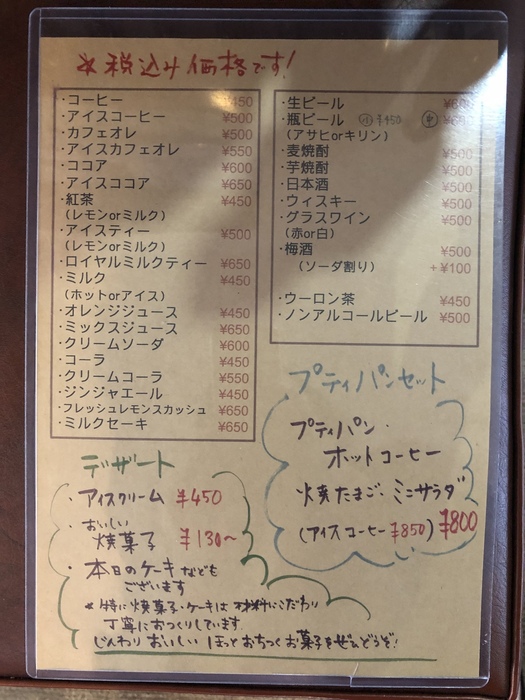 ※税込み価格です！
・コーヒー ¥450
・アイスコーヒー ¥500
・カフェオレ ¥500
・アイスカフェオレ ¥550
・ココア ¥600
・アイスココア ¥650
・紅茶 ¥450
（レモンorミルク）
・アイスティー ¥500
（レモンorミルク）
・ロイヤルミルクティー ¥650
・ミルク ¥450
（ホットorアイス）
・オレンジジュース ¥450
・ミックスジュース ¥650
・クリームソーダ ¥600
・コーラ ¥450
・クリームコーラ ¥550
・ジンジャエール ¥450
・フレッシュレモンスカッシュ ¥650
・ミルクセーキ ¥650
・生ビール
・瓶ビール ㊥ ㊥
（アサヒorキリン）
・麦焼酎 ¥500
・芋焼酎 ¥500
・日本酒 ¥500
・ウィスキー ¥500
・グラスワイン ¥500
（赤or白）
・梅酒 ¥500
（ソーダ割り） +¥100
・ウーロン茶 ¥450
・ノンアルコールビール ¥500
プティパンセット
プティパン・
ホットコーヒー
焼たまご、ミニサラダ
（アイスコーヒー¥850） ¥800
デザート
・アイスクリーム ¥450
・おいしい
焼菓子 ¥130〜
・本日のケーキなども
ございます
※特に焼菓子・ケーキは材料にこだわり
丁寧におつくりしています
じんわりおいしいほっとおちつくお菓子をぜひどうぞ！